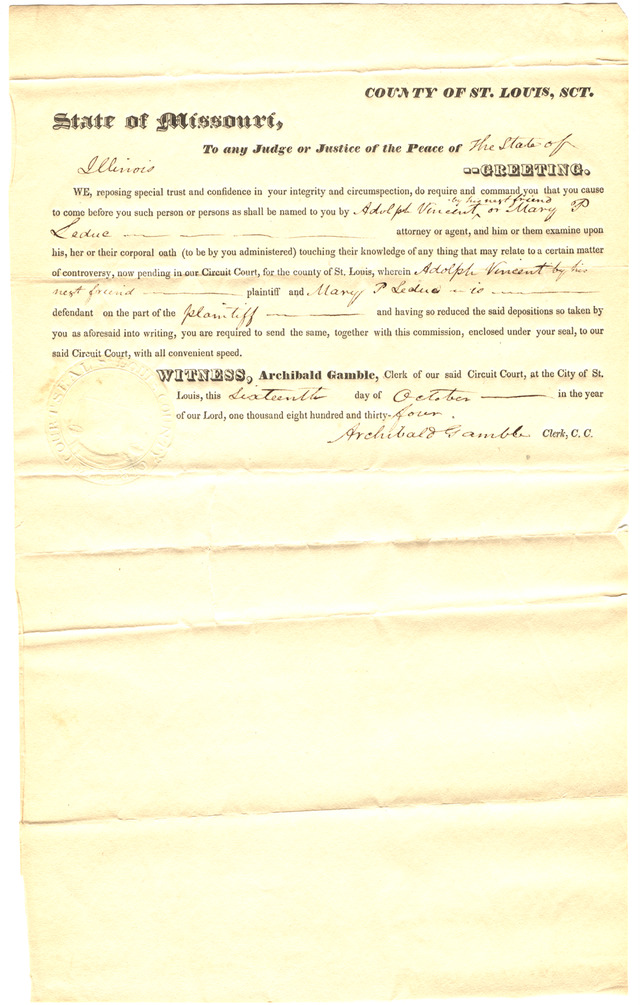 COUNTY OF ST. LOUIS, SCT.
State of Missouri,
To any Judge or Justice of the Peace of The State of
Illinois --GREETING.
WE, reposing special trust and confidence in your integrity and circumspection, do require and command you that you cause
by his next friend
to come before you such person or persons as shall be named to you by Adolph Vincent, or Mary P
Leduc — — — attorney or agent, and him or them examine upon
his, her or their corporal oath (to be by you administered) touching their knowledge of any thing that may relate to a certain matter
of controversy, now pending in our Circuit Court, for the county of St. Louis, wherein Adolph Vincent by his
next friend — plaintiff and Mary P Leduc — is —
defendant on the part of the plaintiff — — and having so reduced the said depositions so taken by
you as aforesaid into writing, you are required to send the same, together with this commission, enclosed under your seal, to our
said Circuit Court, with all convenient speed.
WITNESS, Archibald Gamble, Clerk of our said Circuit Court, at the City of St.
Louis, this Sixteenth day of October — in the year
of our Lord, one thousand eight hundred and thirty-four.
Archibald Gamble Clerk, C. C.